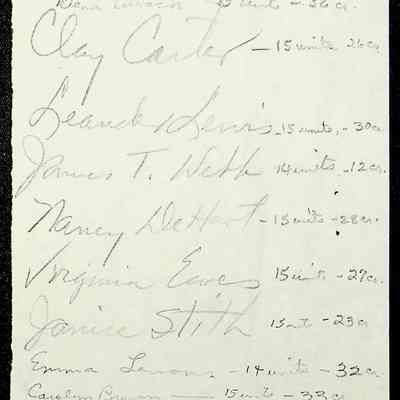 15 units - 36 cr.
Clay Carter - 15 units 26 cr.
Leander Lewis - 15 units, - 30 cr
James T. Webb 14 units - 12 cr.
Nancy DeHart - 15 units - 28 cr.
Virginia Eaves 15 units - 27 cr.
Janice Stith 15 unt - 23 cr
Emma - 14 units - 32 cr.
Carolyn Brown — 15 units - 33 cr.